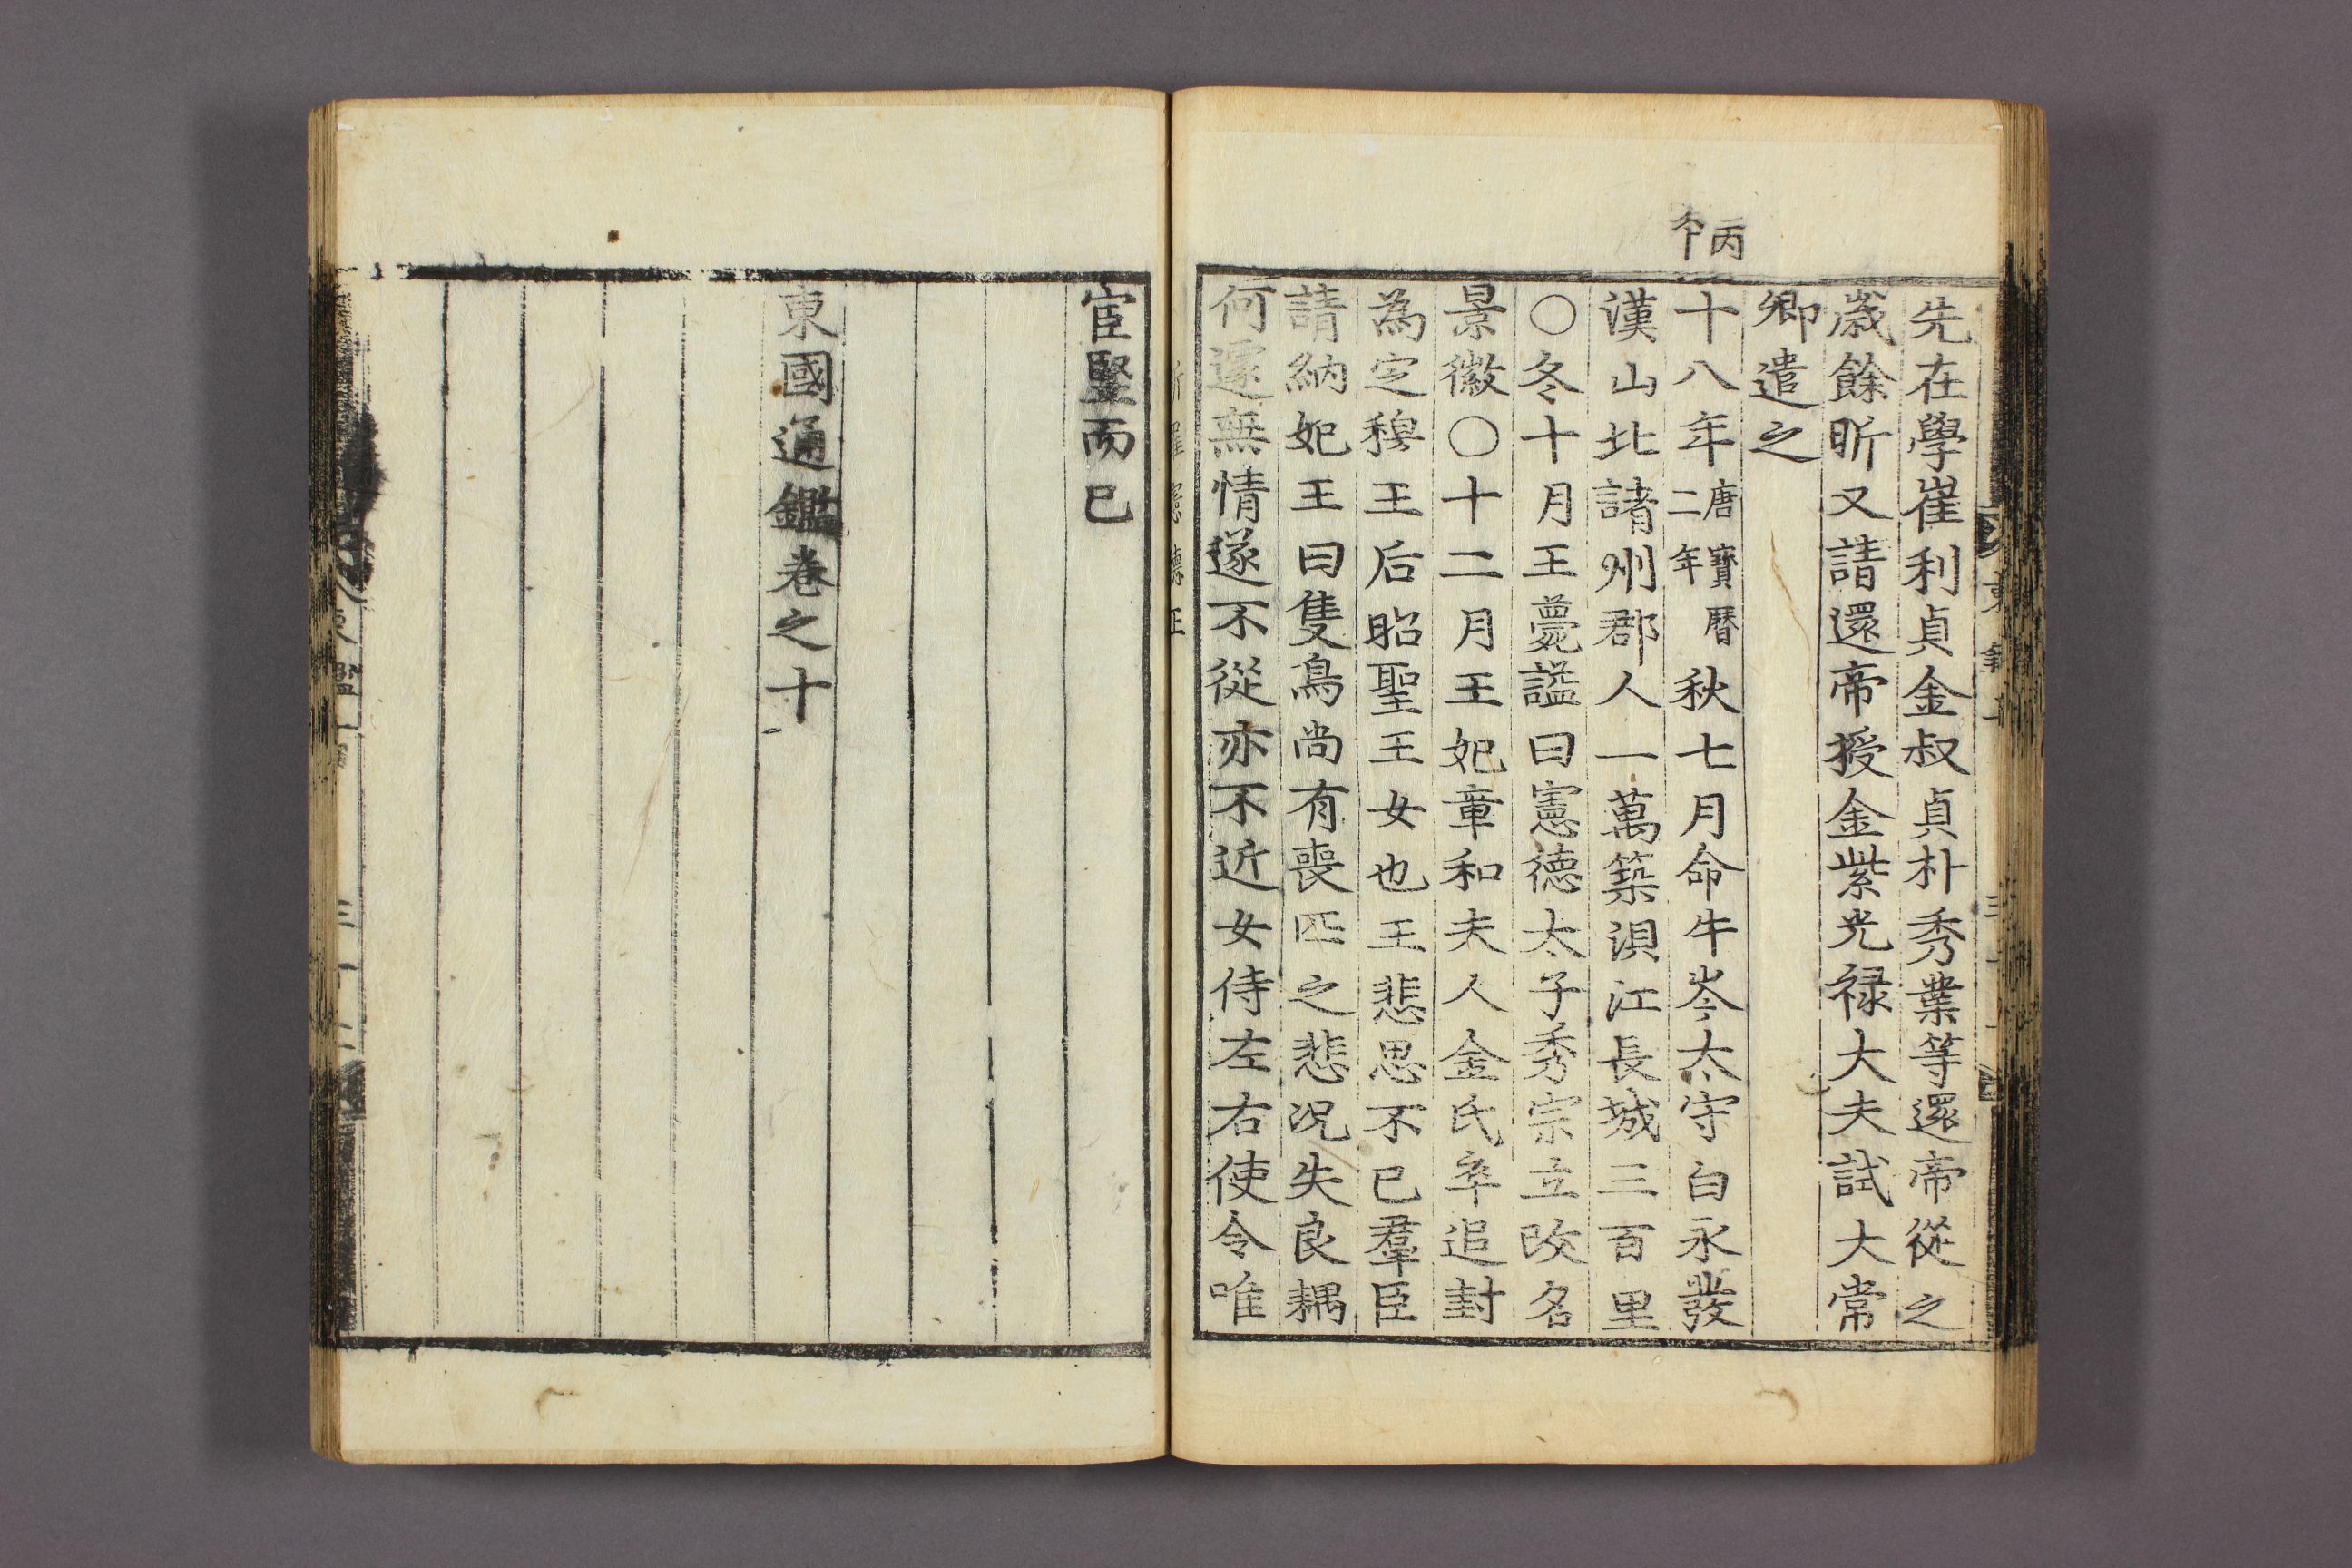 丙午
先在學崔利貞金叔貞朴秀業等還帝從之
歲餘昕又請還帝授金紫光禄大夫試大常
卿遣之
十八年唐寶曆二年秋七月命牛岑太守白永發
漢山北諸州郡人一萬築浿江長城三百里
○冬十月王薨謚曰憲德太子秀宗立改名
景徽○十二月王妃章和夫人金氏卒追封
為定穆王后昭聖王女也王悲思不已羣臣
請納妃王曰隻鳥尚有喪匹之悲况失良耦
何遽無情遂不從亦不近女侍左右使令唯
新羅憲德王
宦竪而已
東國通鑑卷之十